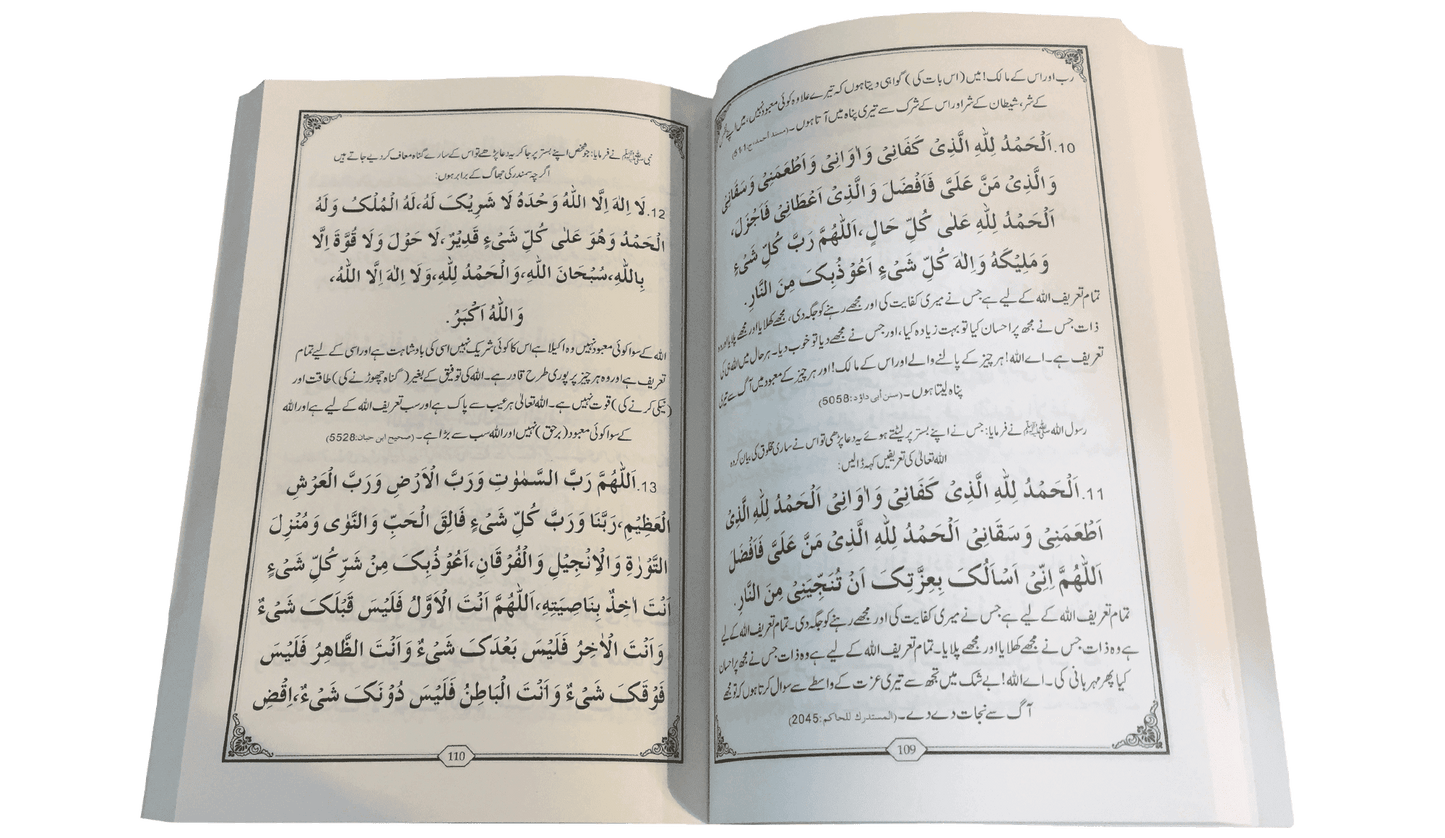 رب اور اس کے مالک! میں (اس بات کی) گواہی دیتا ہوں کہ تیرے علاوہ کوئی معبود نہیں، میں اپنے نفس
کے شر، شیطان کے شر اور اس کے شرک سے تیری پناہ میں آتا ہوں۔ (مسند احمد:ج11ص5)
10. اَلْحَمْدُ لِلّٰهِ الَّذِىْ كَفَانِىْ وَاٰوَانِىْ وَاَطْعَمَنِىْ وَسَقَانِىْ
وَالَّذِىْ مَنَّ عَلَىَّ فَاَفْضَلَ وَالَّذِىْ اَعْطَانِىْ فَاَجْزَلَ،
اَلْحَمْدُ لِلّٰهِ عَلٰى كُلِّ حَالٍ، اَللّٰهُمَّ رَبَّ كُلِّ شَىْءٍ
وَمَلِيْكَهُ وَاِلٰهَ كُلِّ شَىْءٍ اَعُوْذُبِكَ مِنَ النَّارِ.
تمام تعریف اللہ کے لیے ہے جس نے میری کفایت کی اور مجھے رہنے کو جگہ دی، مجھے کھلایا اور مجھے پلایا اور وہ
ذات جس نے مجھ پر احسان کیا تو بہت زیادہ کیا، اور جس نے مجھے دیا تو خوب دیا۔ ہر حال میں اللہ ہی کی
تعریف ہے۔ اے اللہ! ہر چیز کے پالنے والے اور اس کے مالک! اور ہر چیز کے معبود میں آگ سے تیری
پناہ لیتا ہوں۔ (سنن أبی داؤد:5058)
رسول اللہ ﷺ نے فرمایا: جس نے اپنے بستر پر لیٹتے ہوئے یہ دعا پڑھی تو اس نے ساری مخلوق کی بیان کردہ
اللہ تعالیٰ کی تعریفیں کہہ ڈالیں:
11. اَلْحَمْدُ لِلّٰهِ الَّذِىْ كَفَانِىْ وَاٰوَانِىْ اَلْحَمْدُ لِلّٰهِ الَّذِىْ
اَطْعَمَنِىْ وَسَقَانِىْ اَلْحَمْدُ لِلّٰهِ الَّذِىْ مَنَّ عَلَىَّ فَاَفْضَلَ
اَللّٰهُمَّ اِنِّىْ اَسْاَلُكَ بِعِزَّتِكَ اَنْ تُنَجِّيَنِىْ مِنَ النَّارِ.
تمام تعریف اللہ کے لیے ہے جس نے میری کفایت کی اور مجھے رہنے کو جگہ دی۔ تمام تعریف اللہ کے لیے
ہے وہ ذات جس نے مجھے کھلایا اور مجھے پلایا۔ تمام تعریف اللہ کے لیے ہے وہ ذات جس نے مجھ پر احسان
کیا پھر مہربانی کی۔ اے اللہ! بے شک میں تجھ سے تیری عزت کے واسطے سے سوال کرتا ہوں کہ تو مجھے
آگ سے نجات دے دے۔ (المستدرك للحاکم:2045)
109
نبی ﷺ نے فرمایا: جو شخص اپنے بستر پر جا کر یہ دعا پڑھے تو اس کے سارے گناہ معاف کر دیے جاتے ہیں
اگرچہ سمندر کی جھاگ کے برابر ہوں:
12. لَا اِلٰهَ اِلَّا اللّٰهُ وَحْدَهُ لَا شَرِيْكَ لَهُ، لَهُ الْمُلْكُ وَلَهُ
الْحَمْدُ وَهُوَ عَلٰى كُلِّ شَىْءٍ قَدِيْرٌ، لَا حَوْلَ وَلَا قُوَّةَ اِلَّا
بِاللّٰهِ، سُبْحَانَ اللّٰهِ، وَالْحَمْدُ لِلّٰهِ، وَلَا اِلٰهَ اِلَّا اللّٰهُ،
وَاللّٰهُ اَكْبَرُ.
اللہ کے سوا کوئی معبود نہیں وہ اکیلا ہے اس کا کوئی شریک نہیں اسی کی بادشاہت ہے اور اسی کے لیے تمام
تعریف ہے اور وہ ہر چیز پر پوری طرح قادر ہے۔ اللہ کی توفیق کے بغیر (گناہ چھوڑنے کی) طاقت اور
(نیکی کرنے کی) قوت نہیں ہے۔ اللہ تعالیٰ ہر عیب سے پاک ہے اور سب تعریف اللہ کے لیے ہے اور اللہ
کے سوا کوئی معبود (برحق) نہیں اور اللہ سب سے بڑا ہے۔ (صحیح ابن حبان:5528)
13. اَللّٰهُمَّ رَبَّ السَّمٰوٰتِ وَرَبَّ الْاَرْضِ وَرَبَّ الْعَرْشِ
الْعَظِيْمِ، رَبَّنَا وَرَبَّ كُلِّ شَىْءٍ فَالِقَ الْحَبِّ وَالنَّوٰى وَمُنْزِلَ
التَّوْرٰةِ وَالْاِنْجِيْلِ وَالْفُرْقَانِ، اَعُوْذُبِكَ مِنْ شَرِّ كُلِّ شَىْءٍ
اَنْتَ اٰخِذٌ بِنَاصِيَتِهِ، اَللّٰهُمَّ اَنْتَ الْاَوَّلُ فَلَيْسَ قَبْلَكَ شَىْءٌ
وَاَنْتَ الْاٰخِرُ فَلَيْسَ بَعْدَكَ شَىْءٌ وَاَنْتَ الظَّاهِرُ فَلَيْسَ
فَوْقَكَ شَىْءٌ وَاَنْتَ الْبَاطِنُ فَلَيْسَ دُوْنَكَ شَىْءٌ، اِقْضِ
110